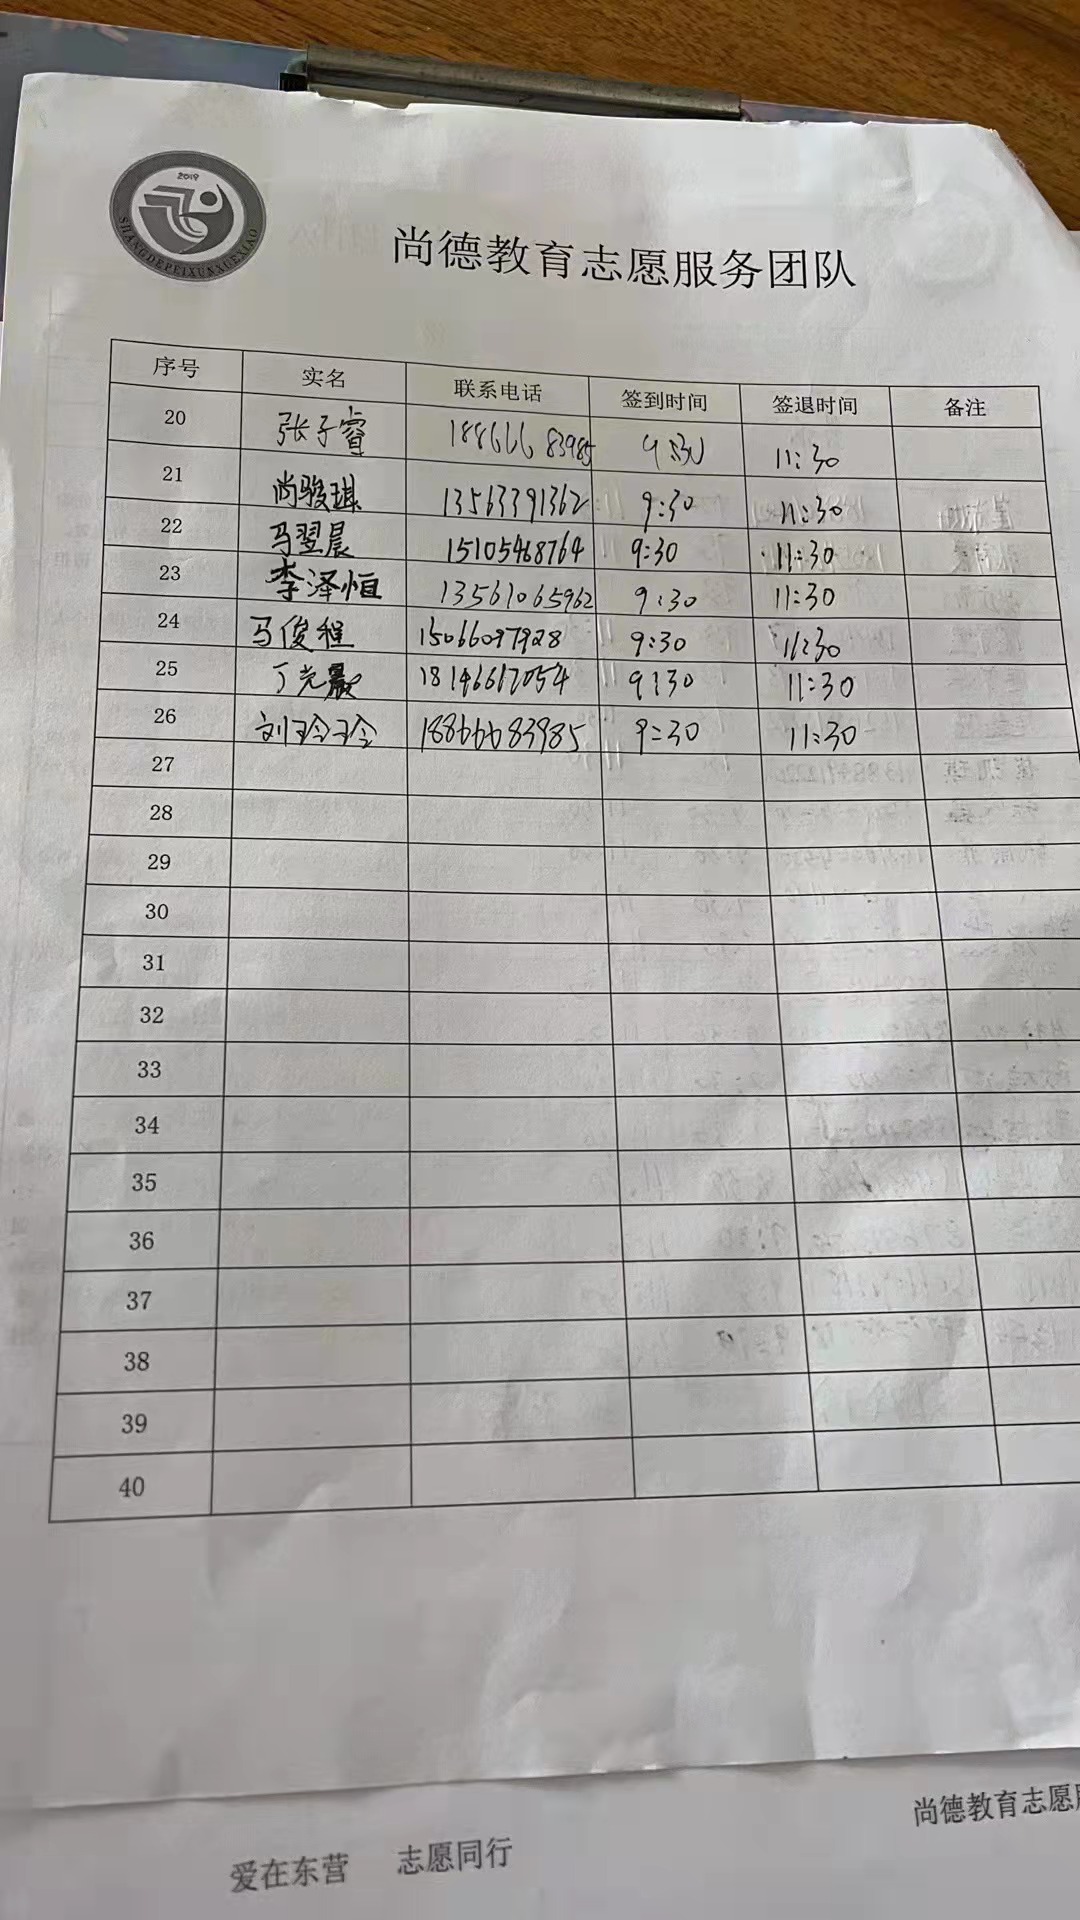 2019
SHANGDEPEIXUNXUEXIAO
尚德教育志愿服务团队
序号 实名 联系电话 签到时间 签退时间 备注
20 张子睿 18866683985 9:30 11:30
21 尚骏琪 13563391362 9:30 11:30
22 马翌晨 15105468764 9:30 11:30
23 李泽恒 13561065962 9:30 11:30
24 马俊程 15066097928 9:30 11:30
25 丁光晨 9:30 11:30
26 刘玲玲 18866683985 9:30 11:30
27
28
29
30
31
32
33
34
35
36
37
38
39
40
尚德教育志愿
爱在东营 志愿同行